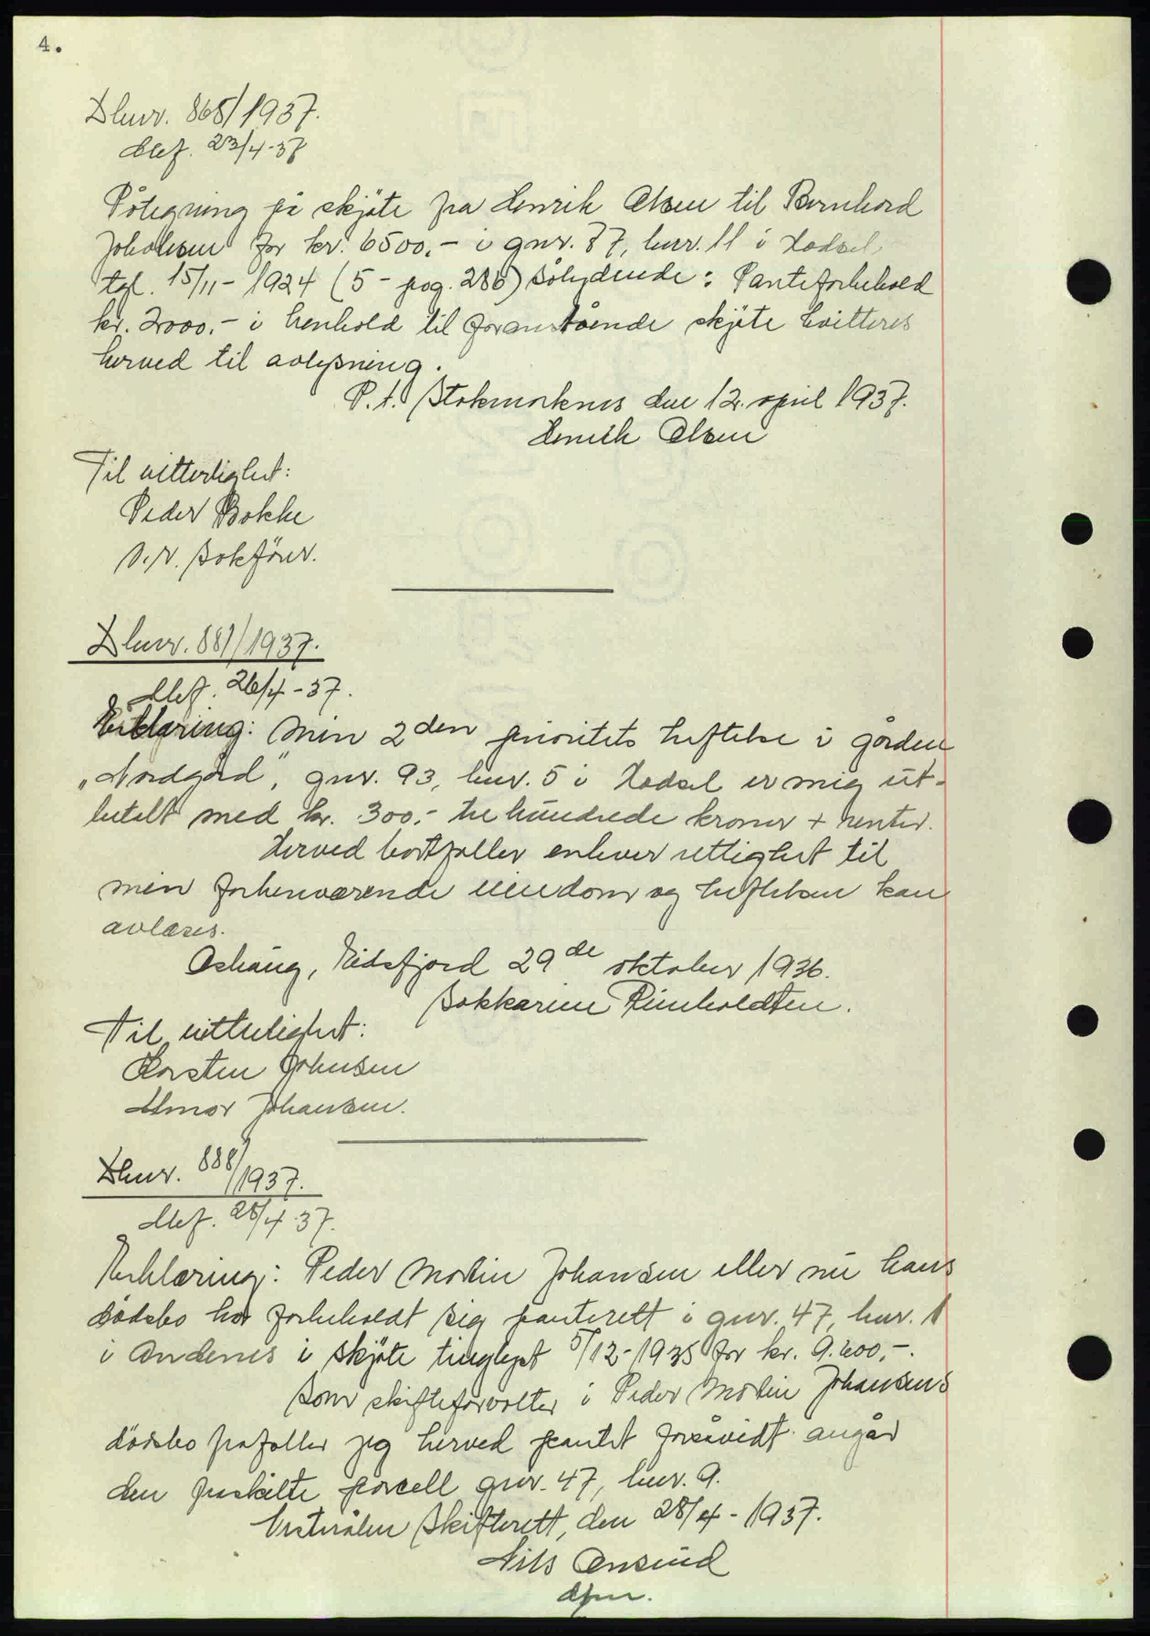 4.
Dbnr. 868/1937.
Tlf. 23/4-37
Påtegning på skjøte fra Henrik Olsen til Bernhard
Johansen for kr. 6500.- i gnr. 87, bnr. 11 i Hadsel
tgl. 15/11- 1924 (5 - pag. 286) sålydende: Panteforbehold
kr. 2000.- i henhold til foranstående skjøte kvitteres
herved til avlysning.
P.t. Stokmarknes den 12. april 1937.
Henrik Olsen
Til vitterlighet:
Peder Bakke
bokfører.
Dbnr. 881/1937.
26/4-37.
Erklæring: Min 2den prioritets heftelse i gården
„Nordgård", gnr. 93, bnr. 5 i Hadsel er mig ut-
betalt med kr. 300.- tre hundrede kroner + renter.
Herved bortfaller enhver rettighet til
min forhenværende eiendom og heftelsen kan
avlæses.
Eidsfjord 29de oktober 1936.
Bokkarine Reinholdtsen.
Til vitterlighet:
Torsten Johnsen
Johansen.
Dbnr. 888/1937.
28/4-37.
Erklæring: Peder Martin Johansen eller nu hans
dødsbo har forbeholdt sig panterett i gnr. 47, bnr. 1
i Andenes i skjøte tinglyst 5/12-1935 for kr. 9.600,-.
Som skifteforvalter i Peder Martin Johansens
dødsbo frafaller jeg herved pantet forsåvidt angår
den fraskilte parcell gnr. 47, bnr. 9.
Vesterålen Skifterett, den 28/4-1937.
Nils Onsrud
dfm.